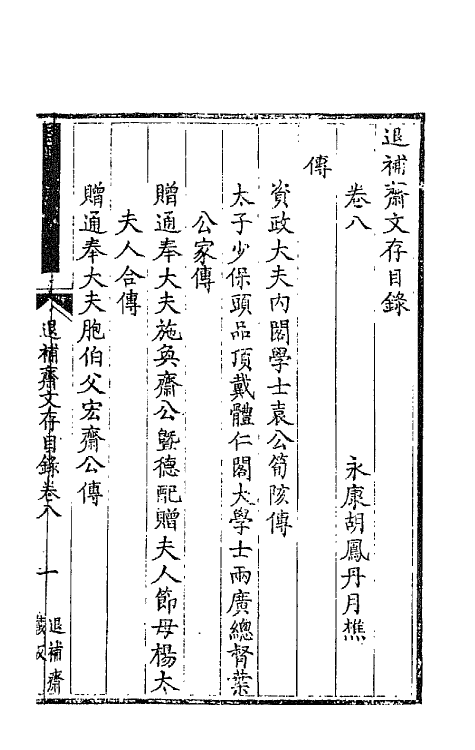 退補齋文存目錄
卷八
永康胡鳳丹月樵
傳
資政大夫內閣學士袁公筍陔傳
太子少保頭品頂戴體仁閣大學士兩廣總督葉
公家傳
贈通奉大夫施奐齋公暨德配贈夫人節母楊太
夫人合傳
贈通奉大夫胞伯父宏齋公傳
退補齋文存目錄卷八
一
退補齋
藏板